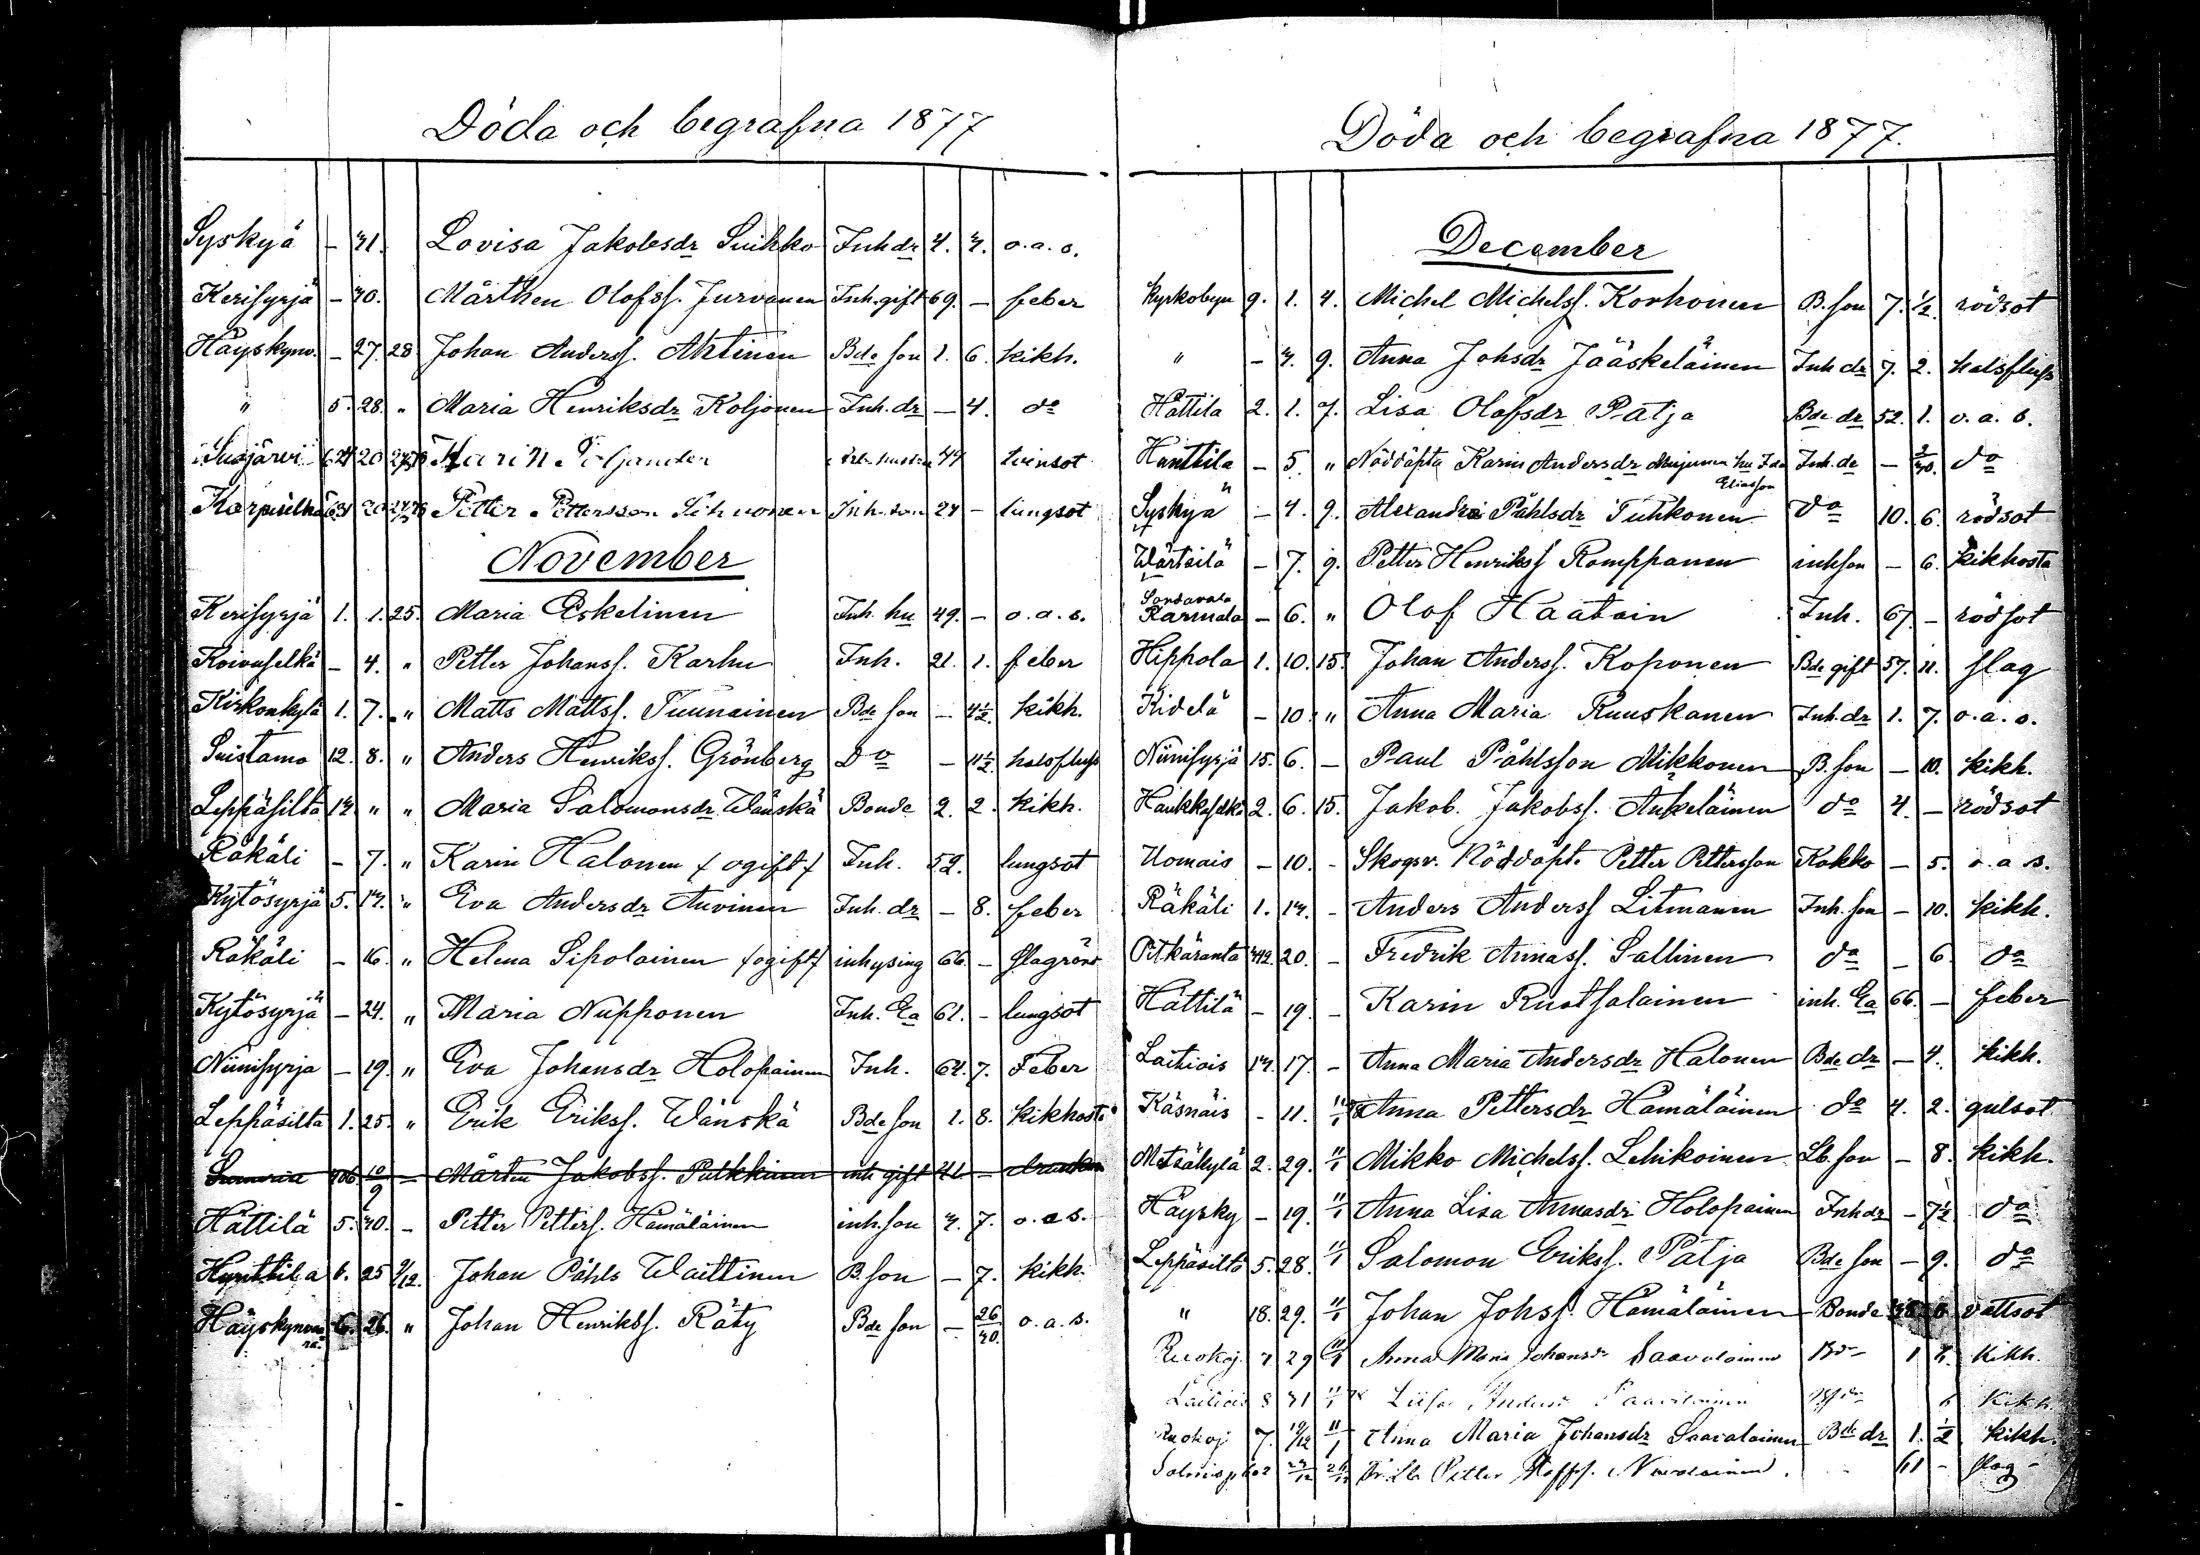 Döda och begrafna 1877
Syskyä - 31. Lovisa Jakobsdr Suikko Inh dr 4. 3. o.a.s.
Kerisyrjä - 30. Mårthen Olofss. Jurvanen Inh. gift 69. - feber
Häyskynv. - 27. 28 Johan Anderss. Ahtinen Bde son 1. 6. kikh.
" 5. 28. " Maria Henriksdr Koljonen Inh. dr - 4. do
Suojärvi 20 Karin 44 tvinsot
Karpiselkä 20 Petter Pettersson Inh. son 24 - lungsot
November
Kerisyrjä 1. 1. 25. Maria Eskelinen Inh. hu 49. - o.a.s.
Koivuselkä - 4. " Petter Johanss. Karhu Inh. 21. 1. feber
Kirkonkylä 1. 7. " Matts Mattss. Tuunainen Bde son - 4½ kikh.
Suistamo 12. 8. " Anders Henrikss. Grönberg Do - 11½ halsfluss
Leppäsilta 13. " " Maria Salomonsdr Wänskä Bonde 2. 2. kikh.
Räkäli - 7. " Karin Halonen / ogift / Inh. 52. lungsot
Kytösyrjä 5. 13. " Eva Andersdr Auvinen Inh. dr - 8. feber
Räkäli - 16. " Helena Sipolainen / ogift / inhysing 66. - slagrörd
Kytösyrjä - 24. " Maria Nupponen Inh. Ea 61. - lungsot
Niinisyrja - 19. " Eva Johansdr Holopainen Inh. 64. 7. Feber
Leppäsilta 1. 25. " Erik Erikss. Wänskä Bde son 1. 8. Kikhosta
106 10/9 - Mårten Jakobss. Pulkkinen inh gift 41. - drunken
Hättilä 5. 30. - Petter Petters. Hämäläinen inh. son 3. 7. o.a.s.
Hynttilä 6. 25 9/12. Johan Påhls Waittinen B. son - 7. Kikh.
Häyskynvaara 6. 26. " Johan Henrikss. Räty Bde son - 26/30. o.a.s.
Döda och begrafna 1877.
December
Kyrkobyn 9. 1. 4. Michel Michelss. Korhonen B. son 7. ½. rödsot
" - 3. 9. Anna Johsdr Jääskeläinen Inh dr 7. 2. halsfluss
Hättila 2. 1. 7. Lisa Olofsdr Patja Bde dr 52. 1. o.a.s.
Hänttilä - 5. " Nöddöpta Karin Andersdr hu Ida Eliasson Inh. dr - 3/30. do
Syskyä - 4. 9. Alexandra Påhlsdr Tuhkonen do 10. 6. rödsot
Wärtsilä - 7. 9. Petter Henrikss Romppanen inhson - 6. Kikhosta
Sordavala Karmala - 6. " Olof Haatain Inh. 67. - rödsot
Hippola 1. 10. 15. Johan Anderss. Koponen Bde gift 57. 11. slag
Kidelä - 10. " Anna Maria Ruuskanen Inh. dr 1. 7. o.a.s.
Niinisyrjä 15. 6. - Paul Påhlsson Mikkonen B. son - 10. Kikh.
Haukkaselkä 2. 6. 15. Jakob. Jakobss. Ankeläinen do 4. - rödsot
Uomais - 10. - Skogsv. Nöddöpt. Petter Pettersson Kokko - 5. o.a.s.
Räkäli 1. 13. - Anders Anderss Litmanen Inh. son - 10. Kikh.
Pitkäranta 20. - Fredrik Annass. Sallinen do - 6 do
Hättilä - 19. - Karin Ruotsalainen inh. Ea 66. - feber
Laitiois 13. 17. - Anna Maria Andersdr Halonen Bde dr - 4. Kikh.
Käsnäis - 11. Anna Pettersdr Hämäläinen do 4. 2. gulsot
Metsäkylä 2. 29. 11/1 Mikko Michelss. Lehikoinen Lb. son - 8. Kikh.
Häysky - 19. 11/1 Anna Lisa Annasdr Holopainen Inh dr - 7½ do
Leppäsilta 5. 28. 11/1 Salomon Erikss. Patja Bde son - 9. do
" 18. 29. 11/1 Johan Johss. Hämäläinen Bonde vattsot
Ruokoj. 7 29 Anna Maria Johansdr Saavalainen 1 Kikh.
Laitiois 8 31 Kikh.
Ruokoj 7. 19/12 11/1 Anna Maria Johansdr Saavalainen Bde dr 1. ½ Kikh.
Petter 61 - slag -